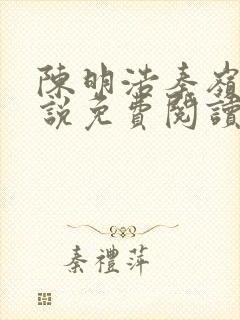 陳明浩秦嶺
說免費閱讀
秦禮萍